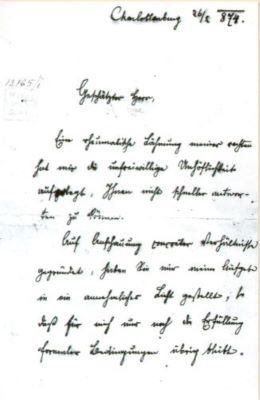 Charlottenburg 26/2 874.
13165/1
Geschätzter Herr,
Eine rheumatische Lähmung meiner rechten
hat mir die unfreiwillige Unhöflichkeit
auferlegt, Ihnen nicht schneller antwor-
ten zu können.
Auf Anschauung concreter Verhältnisse
gegründet, haben Sie mir meine Aufgabe
in ein annehmliches Licht gestellt; so
daß für mich nur noch die Erfüllung
formaler Bedingungen übrig bleibt.